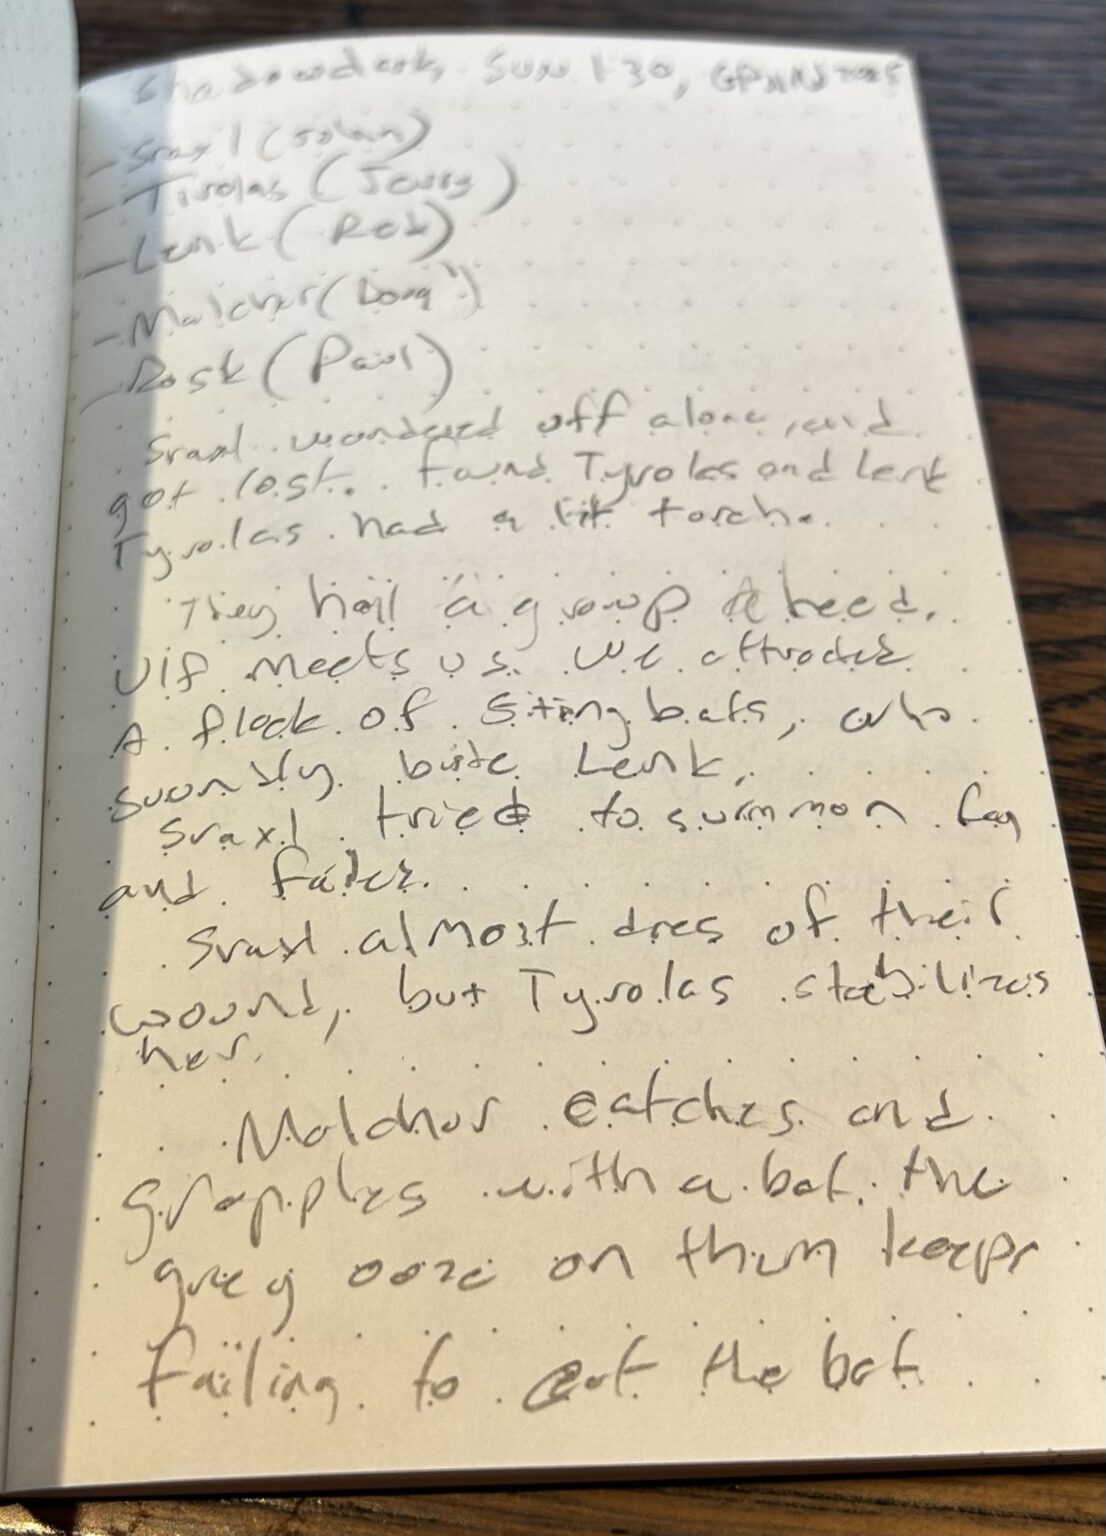 Shadowdark, Sun 130,
- Sraxl (
- Tirolas (Jerry)
- Lenk (Rob)
- Malchor (Doug)
- Rosk (Paul)
Sraxl wondered off alone, and
got lost. Found Tyrolas and Lenk
Tyrolas had a lit torch.
They hail a group ahead.
Ulf meets us. We attracted
A flock of Stingbats, who
soundly bite Lenk.
Sraxl tried to summon fog
and failed.
Sraxl almost dies of their
wound, but Tyrolas stabilizes
her.
Malchor catches and
grapples with a bat. the
grey ooze on them keeps
failing to eat the bat